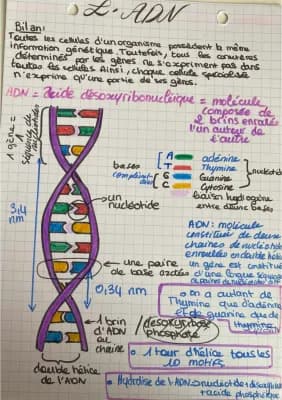 L'ADN
Bilan:
Toutes les cellules d'un organisme possèdent la même
information génétique. Toutefois, tous les caractères
déterminés par les gènes ne s'expriment pas dans
toutes les cellules. Ainsi, chaque cellule spécialisée
n'exprime qu'une partie de ses gènes.
ADN = acide désoxyribonucléique = molécule
composée de
2 brins enroulés
l'un autour de
l'autre
1 gène =
1 séquence de
nucléotides
bases
complémentaires
A adénine
T Thymine
G Guanine
C Cytosine
nucléotides
liaison hydrogène
entre deux bases
un
nucléotide
3,4
nm
ADN: molécule
constituée de deux
chaînes de nucléotides
enroulées en double hélice
un gène est constitué
d'une longue séquence
de paires de nucléotides
une paire
de base azotées
0,34 nm
on a autant de
Thymine que d'adénine
et de guanine que de
thymine
1 brin
d'ADN
ou
chaîne
désoxyribose
phosphate
1 tour d'hélice tous les
10 motifs
double hélice
de l'ADN
Hydrolyse de l'ADN → nucléotide + désoxyribose
+ acide phosphorique